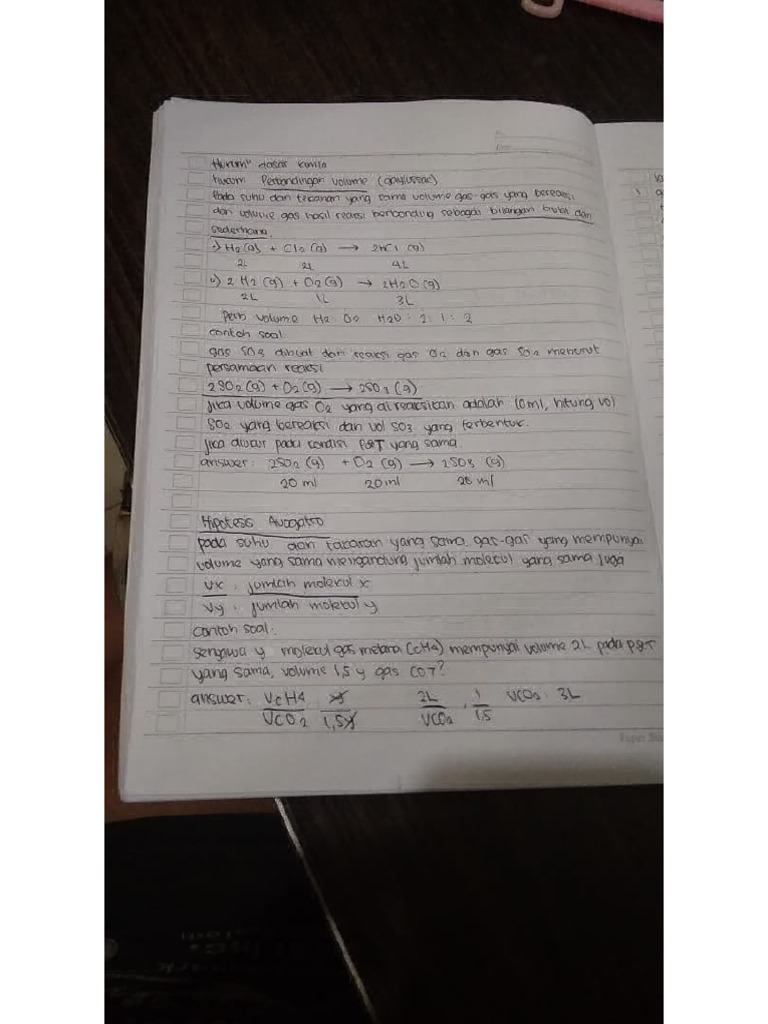 Hukum" dasar kimia
hukum Perbandingan volume (gaylussac)
Pada suhu dan tekanan yang sama volume gas-gas yang bereaksi
dan volume gas hasil reaksi berbanding sebagai bilangan bulat dan
sederhana.
1) H2(g) + Cl2(g) → 2HCl (g)
2L 2L 4L
2 H2(g) + O2(g) → 2H2O(g)
2L 1L 3L
Perb volume H2 O2 H2O : 2 : 1 : 2
contoh soal
gas SO3 dibuat dari reaksi gas O2 dan gas SO2 menurut
persamaan reaksi
2SO2(g) + O2(g) → 2SO3(g)
jika volume gas O2 yang direaksikan adalah 10ml, hitung vol
SO2 yang bereaksi dan vol SO3 yang terbentuk.
jika diukur pada kondisi P&T yang sama
answer: 2SO2(g) + O2(g) → 2SO3 (g)
20 ml 20 ml 20 ml
Hipotesis Avogadro
pada suhu dan tekanan yang sama, gas-gas yang mempunyai
volume yang sama mengandung jumlah molekul yang sama juga
Vx : jumlah molekul x
Vy : jumlah molekul y
contoh soal:
senyawa y molekul gas metana (CH4) mempunyai volume 2L pada P&T
yang sama, volume 1,5 y gas CO?
answer: VCH4 y 2L 1 VCO2 : 3L
VCO2 1,5y VCO2 1,5